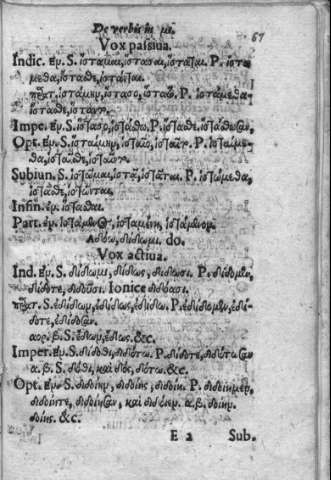 De verbis in μι. 67
Vox passiua.
Indic. ἐν. S. ἵσταμαι, ἵστασαι, ἵσταται. P. ἱστά-
μεθα, ἵστασθε, ἵστανται.
πρτ. ἱστάμην, ἵστασο, ἵστατο. P. ἱστάμεθα,
ἵστασθε, ἵσταντο.
Impe. ἐν. S. ἵστασο, ἱστάσθω. P. ἵστασθε, ἱστάσθωσαν,
Opt. ἐν. S. ἱσταίμην, ἱσταῖο, ἱσταῖτο. P. ἱσταίμε-
θα, ἱσταῖσθε, ἱσταῖντο.
Subiun. S. ἱστῶμαι, ἱστᾷ, ἱστᾶται. P. ἱστώμεθα,
ἱστᾶσθε, ἱστῶνται.
Infin. ἐν. ἵστασθαι.
Part. ἐν. ἱστάμενος, ἱσταμένη, ἱστάμενον.
Δόω, δίδωμι. do.
Vox actiua.
Ind. ἐν. S. δίδωμι, δίδως, δίδωσι. P. δίδομεν,
δίδοτε, διδοῦσι. Ionicè διδόασι.
πρτ. S. ἐδίδων, ἐδίδως, ἐδίδω. P. ἐδίδομεν, ἐδί-
δοτε, ἐδίδοσαν.
αορ. β. S. ἔδων, ἔδως. &c.
Imper. ἐν. S. δίδοθι, διδότω. P. δίδοτε, διδότωσαν
α. β. S. δόθι, καὶ δὸς, δότω. &c.
Opt. ἐν. S. διδοίην, διδοίης, διδοίη. P. διδοίημεν,
διδοίητε, διδοίησαν, καὶ διδοῖεν. α. β. δοίην.
δοίης. &c.
E 2 Sub.